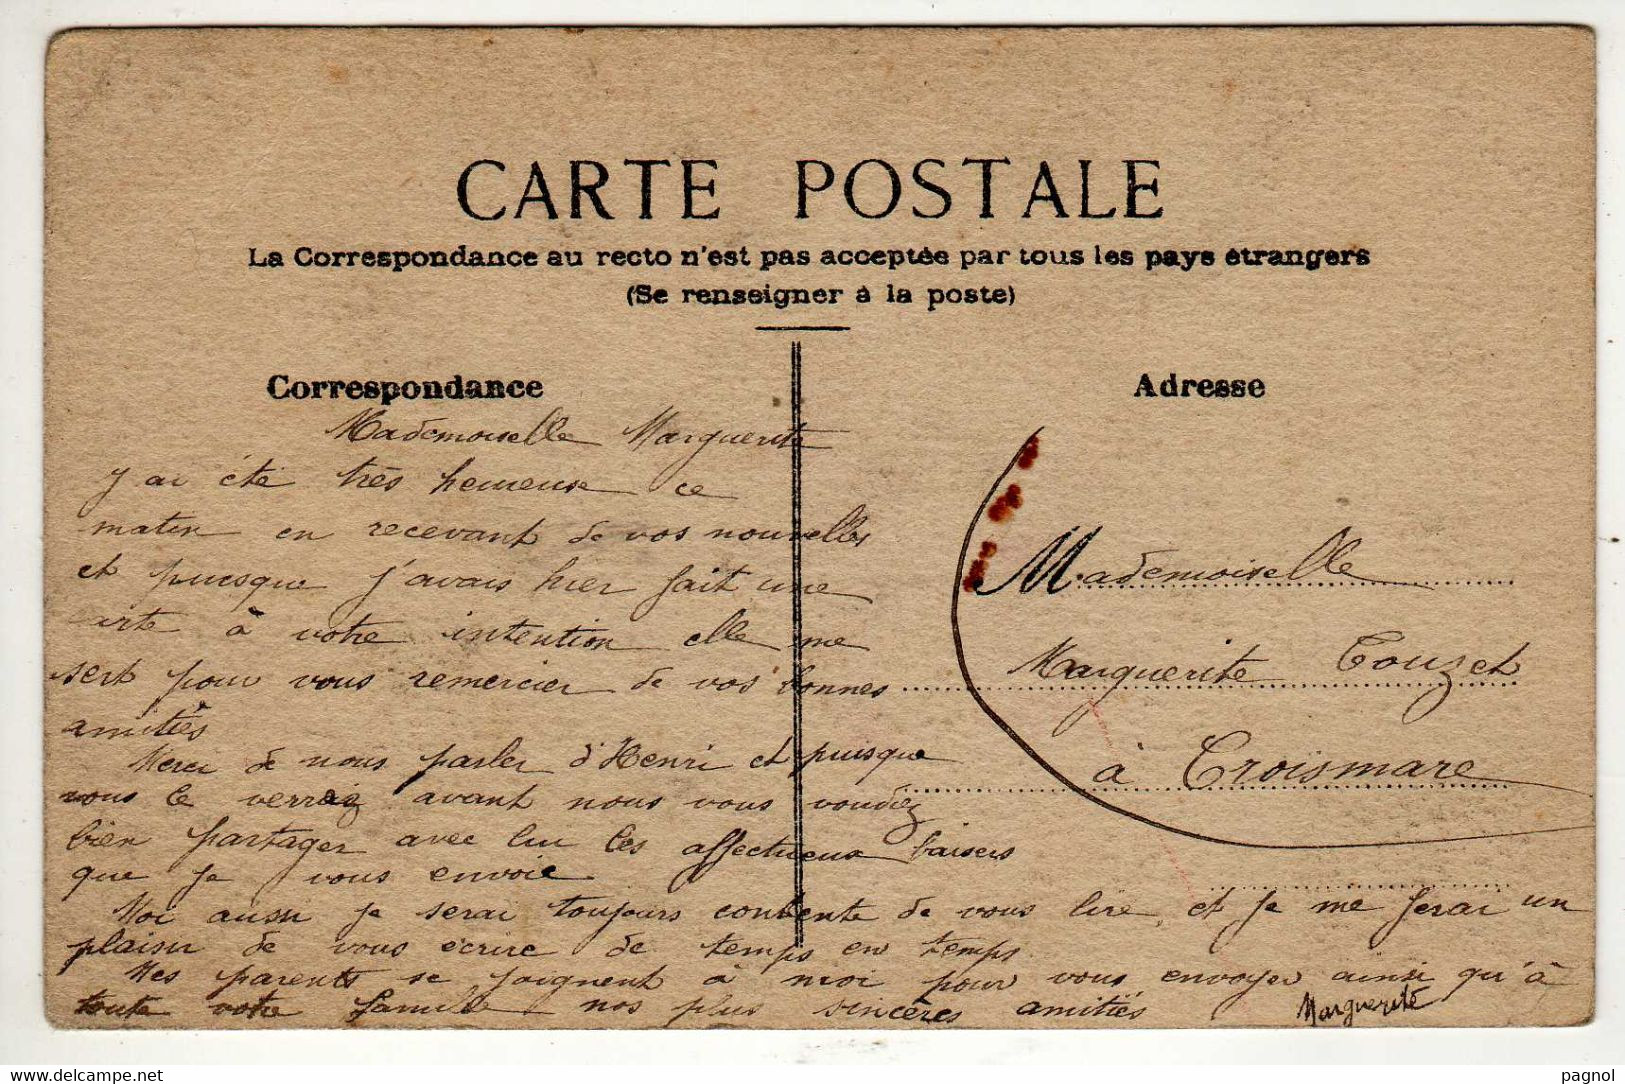 CARTE POSTALE
La Correspondance au recto n'est pas acceptée par tous les pays étrangers
(Se renseigner à la poste)
Correspondance
Mademoiselle Marguerite
J'ai été très heureuse ce
matin en recevant de vos nouvelles
et puisque j'avais hier fait une
carte à votre intention elle me
sert pour vous remercier de vos bonnes
amitiés
Merci de nous parler d'Henri et puisque
vous le verrez avant nous vous voudrez
bien partager avec lui les affectueux baisers
que je vous envoie
Moi aussi je serai toujours contente de vous lire, et je me ferai un
plaisir de vous écrire de temps en temps
Mes parents se joignent à moi pour vous envoyer ainsi qu'à
toute votre famille nos plus sincères amitiés
Marguerite
Adresse
Mademoiselle
Marguerite Touzet
à Croismare
www.delcampe.net
pagnol